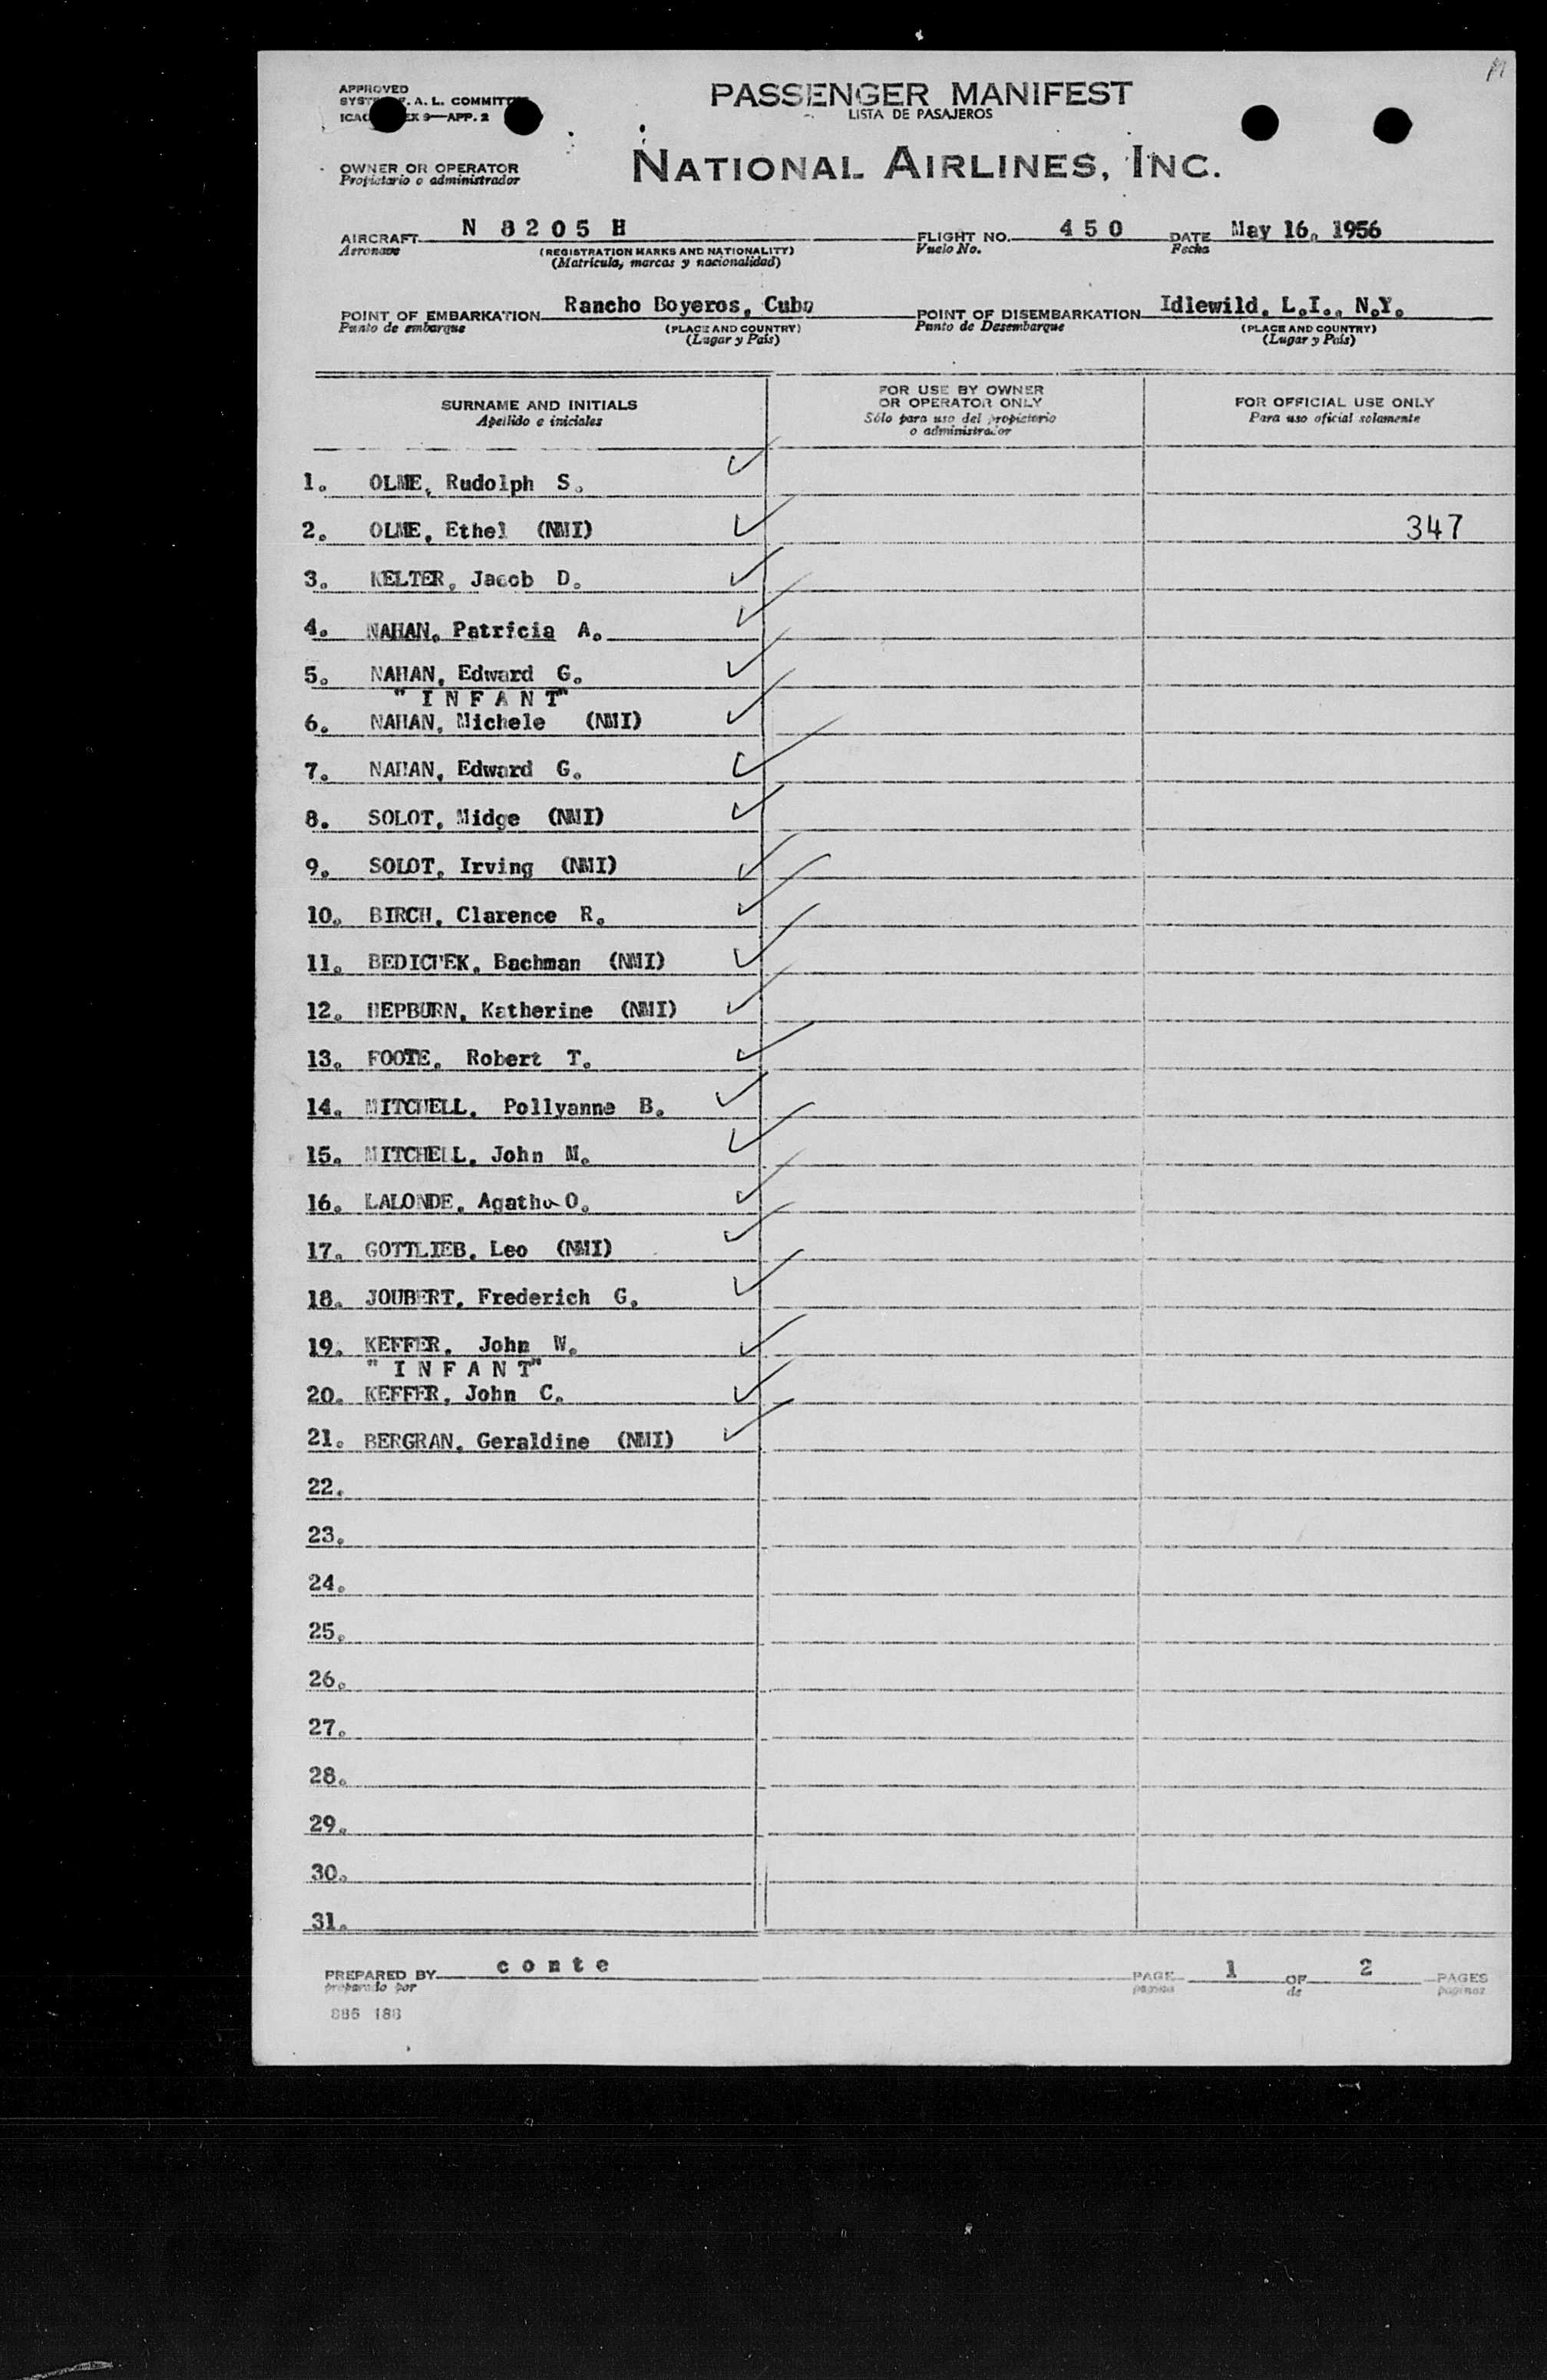 APPROVED
PASSENGER MANIFEST
A. L. COMMITTEE
LISTA DE PASAJEROS
ICAO EX 9—APP. 2
OWNER OR OPERATOR
Propietario o administrador
NATIONAL AIRLINES, INC.
AIRCRAFT N 8205H FLIGHT NO. 450 DATE May 16, 1956
Aeronave (REGISTRATION MARKS AND NATIONALITY) Vuelo No. Fecha
(Matricula, marcas y nacionalidad)
POINT OF EMBARKATION Rancho Boyeros, Cuba POINT OF DISEMBARKATION Idlewild, L.I., N.Y.
Punto de embarque (PLACE AND COUNTRY) Punto de Desembarque (PLACE AND COUNTRY)
(Lugar y País) (Lugar y País)
SURNAME AND INITIALS
Apellido e iniciales
FOR USE BY OWNER
OR OPERATOR ONLY
Sólo para uso del propietario
o administrador
FOR OFFICIAL USE ONLY
Para uso oficial solamente
1. OLME, Rudolph S.
2. OLME, Ethel (NMI) 347
3. KELTER, Jacob D.
4. NAHAN, Patricia A.
5. NAHAN, Edward G.
"INFANT"
6. NAHAN, Michele (NMI)
7. NAHAN, Edward G.
8. SOLOT, Midge (NMI)
9. SOLOT, Irving (NMI)
10. BIRCH, Clarence R.
11. BEDICHEK, Bachman (NMI)
12. HEPBURN, Katherine (NMI)
13. FOOTE, Robert T.
14. MITCHELL, Pollyanne B.
15. MITCHELL, John M.
16. LALONDE, Agatha O.
17. GOTTLIEB, Leo (NMI)
18. JOUBERT, Frederich G.
19. KEFFER, John W.
"INFANT"
20. KEFFER, John C.
21. BERGRAN, Geraldine (NMI)
22.
23.
24.
25.
26.
27.
28.
29.
30.
31.
PREPARED BY conte PAGE 1 OF 2 PAGES
preparado por pagina de paginas
886 188